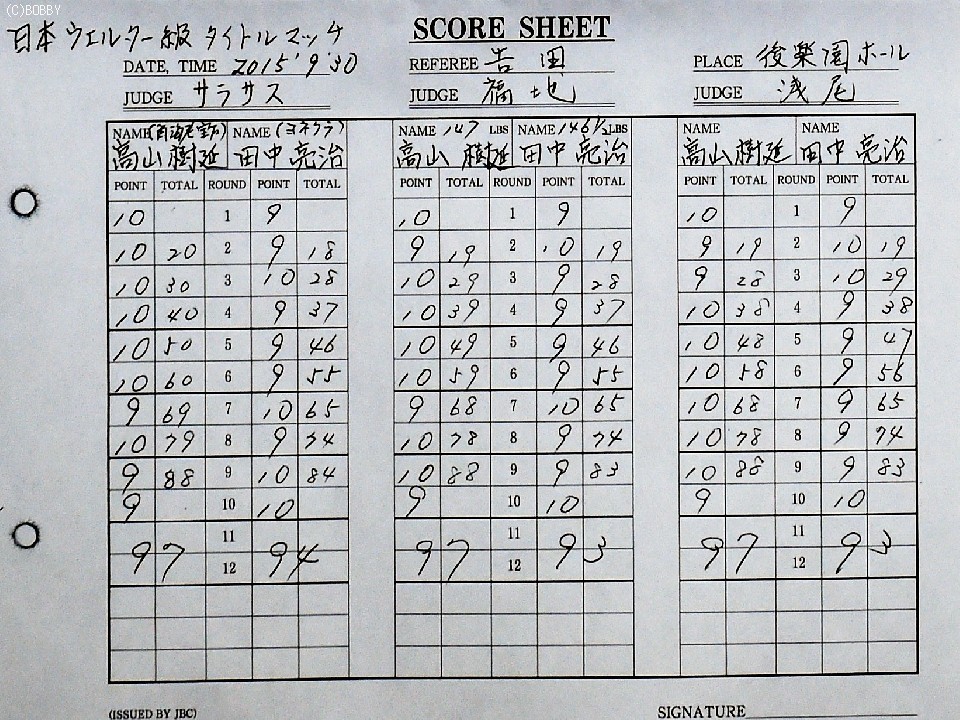 (C)BOBBY
日本ウエルター級タイトルマッチ
SCORE SHEET
DATE, TIME 2015' 9' 30
REFEREE 吉田
PLACE 後楽園ホール
JUDGE サラサス
JUDGE 福地
JUDGE 浅尾
NAME NAME (ヨネクラ) NAME 147 LBS NAME 146½ LBS NAME NAME
高山樹延 田中亮治 高山樹延 田中亮治 高山樹延 田中亮治
POINT TOTAL ROUND POINT TOTAL POINT TOTAL ROUND POINT TOTAL POINT TOTAL ROUND POINT TOTAL
10 1 9 10 1 9 10 1 9
10 20 2 9 18 9 19 2 10 19 9 19 2 10 19
10 30 3 10 28 10 29 3 9 28 9 28 3 10 29
10 40 4 9 37 10 39 4 9 37 10 38 4 9 38
10 50 5 9 46 10 49 5 9 46 10 48 5 9 47
10 60 6 9 55 10 59 6 9 55 10 58 6 9 56
9 69 7 10 65 9 68 7 10 65 10 68 7 9 65
10 79 8 9 74 10 78 8 9 74 10 78 8 9 74
9 88 9 10 84 10 88 9 9 83 10 88 9 9 83
9 10 10 9 10 10 9 10 10
11 11 11
97 94 97 93 97 93
12 12 12
(ISSUED BY JBC)
SIGNATURE